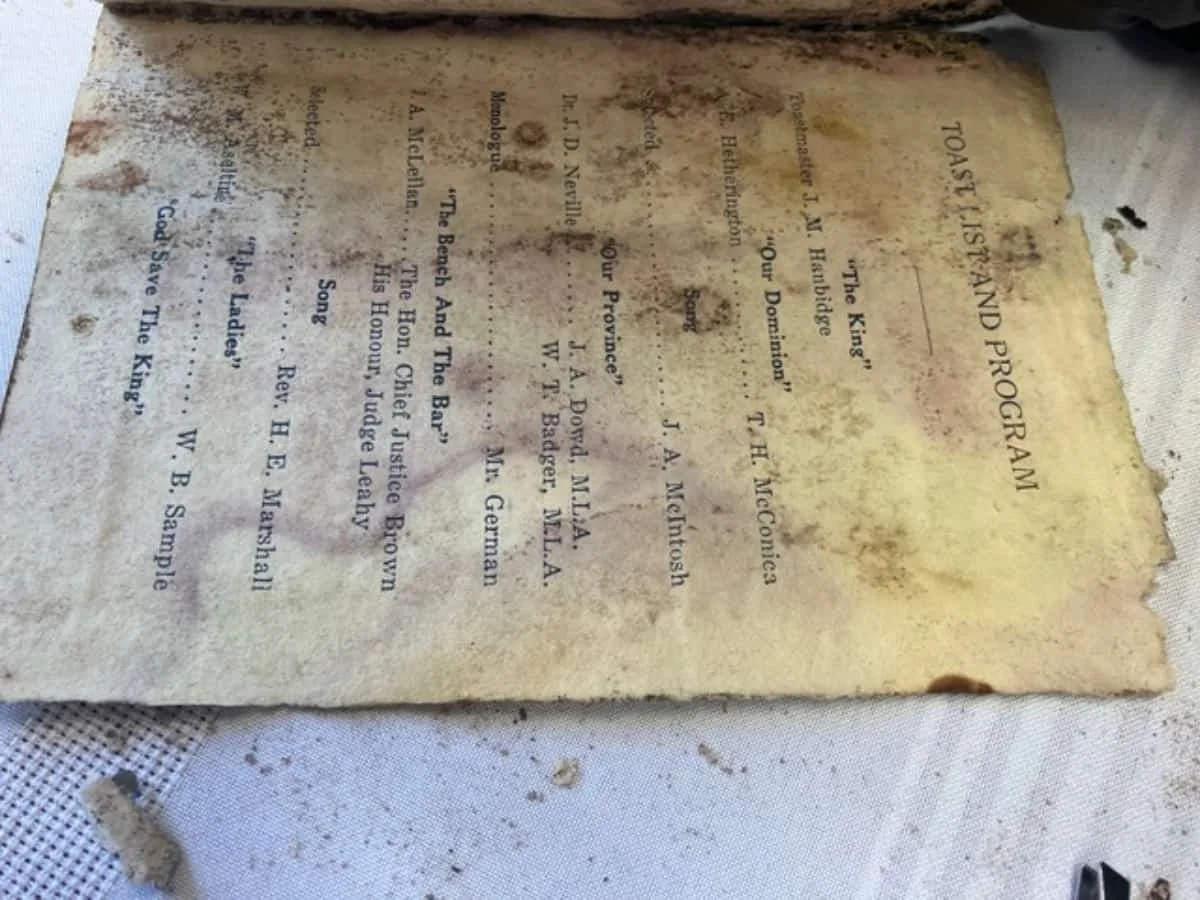 TOAST LIST AND PROGRAM
"The King"
Toastmaster J. M. Hanbidge
"Our Dominion"
E. Hetherington .......... T. H. McConica
Song
Selected .......... J. A. McIntosh
"Our Province"
Dr. J. D. Neville ........ J. A. Dowd, M.L.A.
W. T. Badger, M.L.A.
Monologue .......... Mr. German
"The Bench And The Bar"
J. A. McLellan.... The Hon. Chief Justice Brown
His Honour, Judge Leahy
Song
Selected .......... Rev. H. E. Marshall
"The Ladies"
.......... W. B. Sample
"God Save The King"